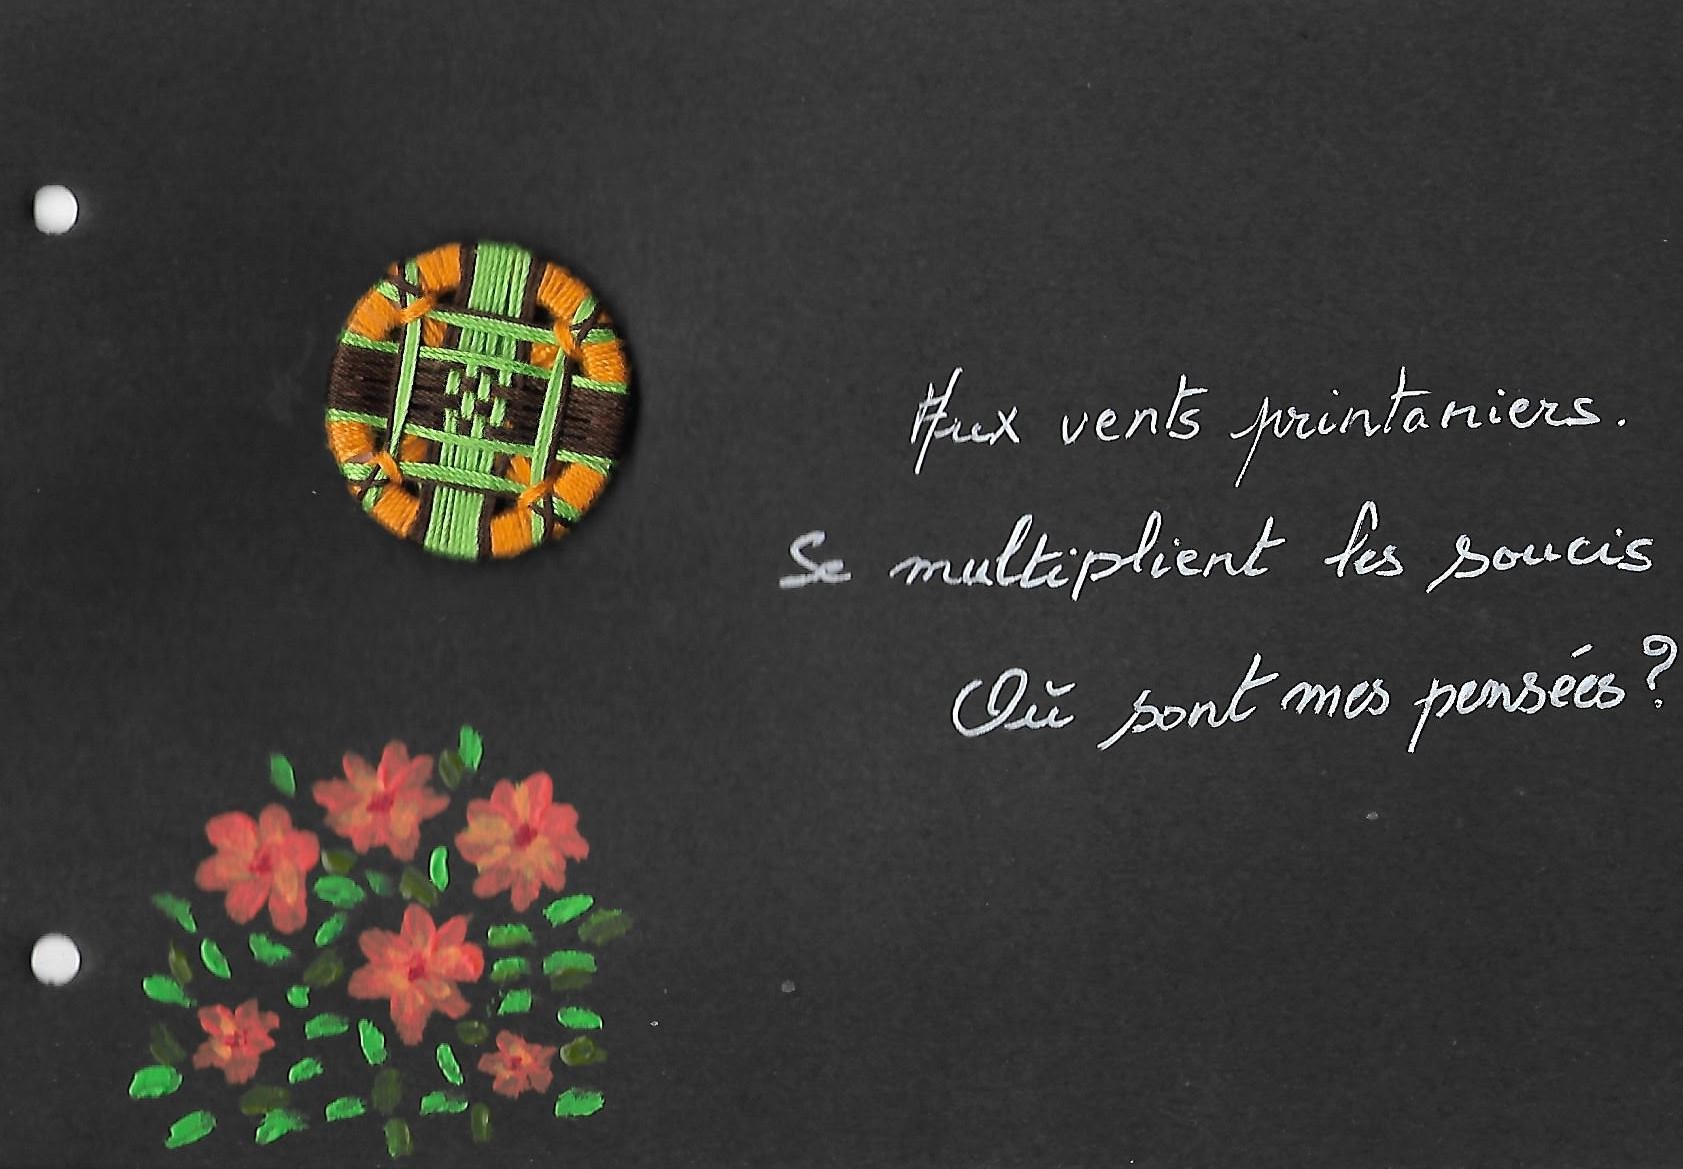 Aux vents printaniers.
Se multiplient les soucis
Où sont mes pensées ?